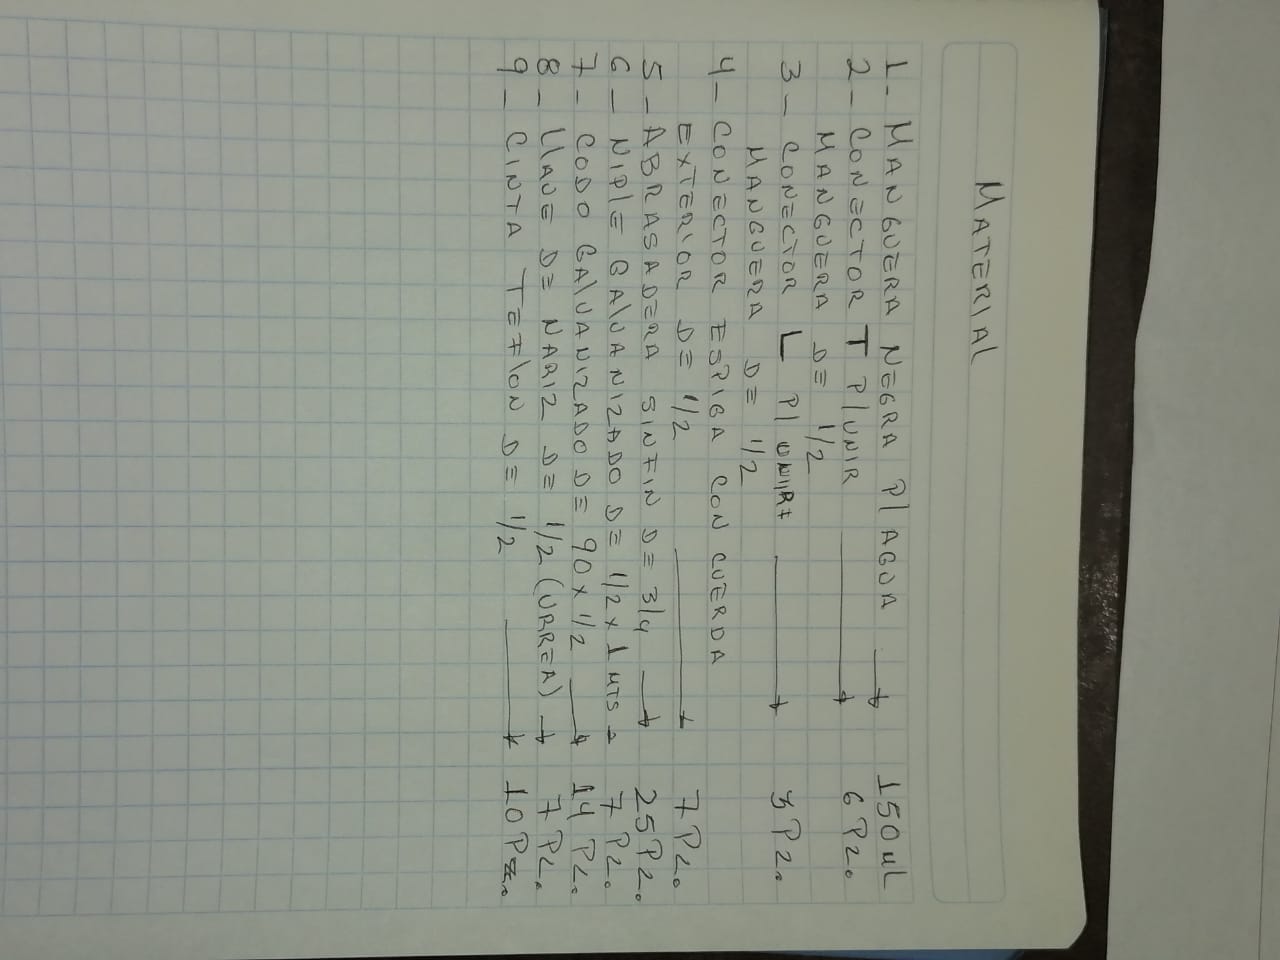 MATERIAL
1- MANGUERA NEGRA P/AGUA → 150 ML
2- CONECTOR T P/UNIR → 6 PZ.
MANGUERA DE 1/2
3- CONECTOR L P/UNIR → 3 PZ.
MANGUERA DE 1/2
4- CONECTOR ESPIGA CON CUERDA
EXTERIOR DE 1/2 → 7 PZ.
5- ABRASADERA SINFIN DE 3/4 → 25 PZ.
6- NIPLE GALVANIZADO DE 1/2 x 1 MTS → 7 PZ.
7- CODO GALVANIZADO DE 90 x 1/2 → 14 PZ.
8- LLAVE DE NARIZ DE 1/2 (URREA) → 7 PZ.
9- CINTA TEFLON DE 1/2 → 10 PZ.